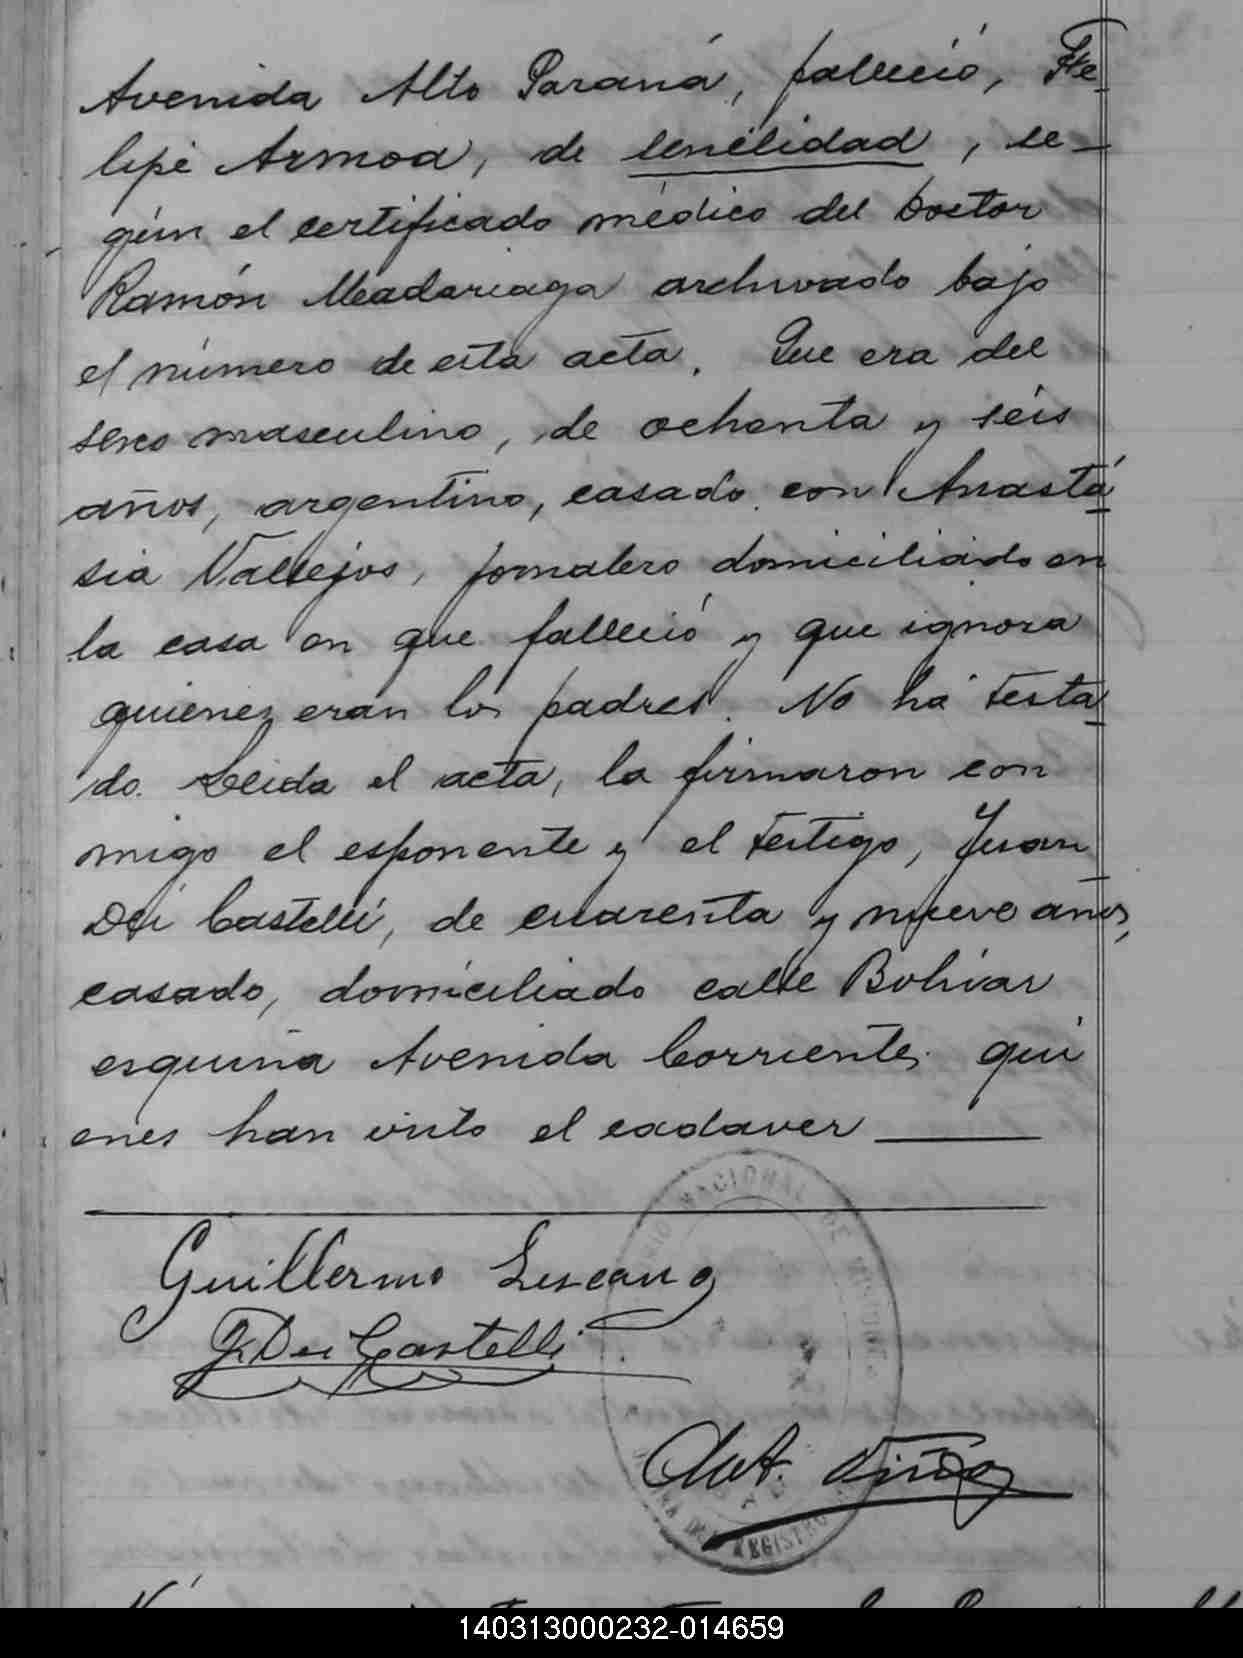 Avenida Alto Paraná, falleció, Fe-
lipe Armoa, de senilidad, se-
gún el certificado médico del Doctor
Ramón Meadariaga archivado bajo
el número de esta acta. Que era del
sexo masculino, de ochenta y séis
años, argentino, casado con Anastá-
sia Vallejos, jornalero domiciliado en
la casa en que falleció y que ignora
quienes eran los padres. No há testa-
do. Leida el acta, la firmaron con
migo el esponente y el testigo, Juan
Dei Castelli, de cuarenta y nueve años,
casado, domiciliado calle Bolivar
esquina Avenida Corrientes. qui
enes han visto el cadaver
Guillermo Lescano
J. Dei Castelli
NACIONAL DE MISIONES
REGISTRO
140313000232-014659